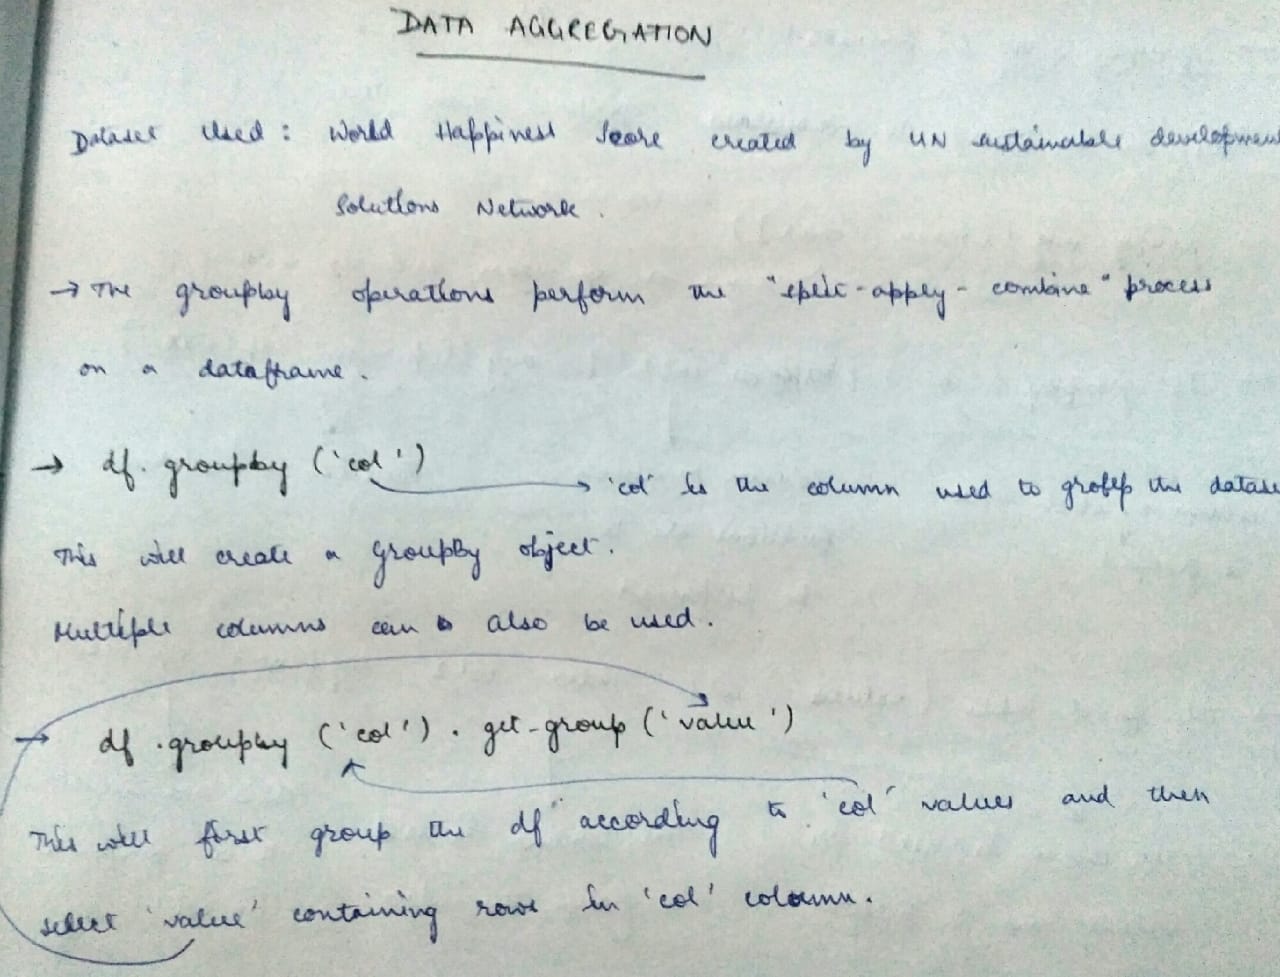 DATA AGGREGATION
Dataset Used : World Happiness Score created by UN sustainable development
Solutions Network .
→ The groupby operations perform the "split-apply-combine" process
on a dataframe .
→ df.groupby ('col')
→ 'col' is the column used to group the datase
This will create a GroupBy object.
Multiple columns can also be used .
→ df.groupby ('col') . get-group ('value')
This will first group the df according to 'col' values and then
select 'value' containing rows in 'col' column .